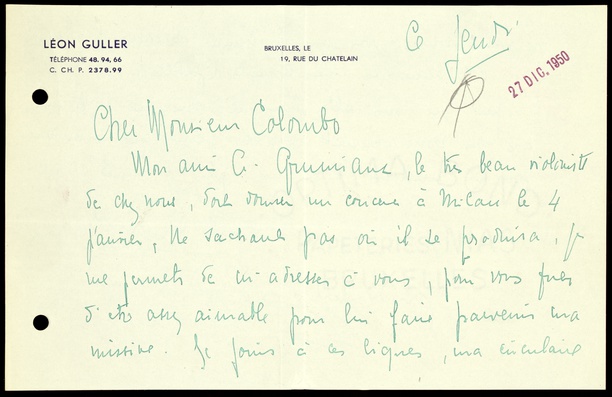 LÉON GULLER
TÉLÉPHONE 48.94.66
C. CH. P. 2378.99
BRUXELLES, LE
19, RUE DU CHATELAIN
Ce Jeudi
27 DIC. 1950
Cher Monsieur Colombo
Mon ami A. Grumiaux, le très beau violoniste
de chez nous, doit donner un concert à Milan le 4
janvier, Ne sachant pas où il se produira, je
me permets de m'adresser à vous, pour vous prier
d'être assez aimable pour lui faire parvenir ma
missive. Je joins à ces lignes, ma circulaire